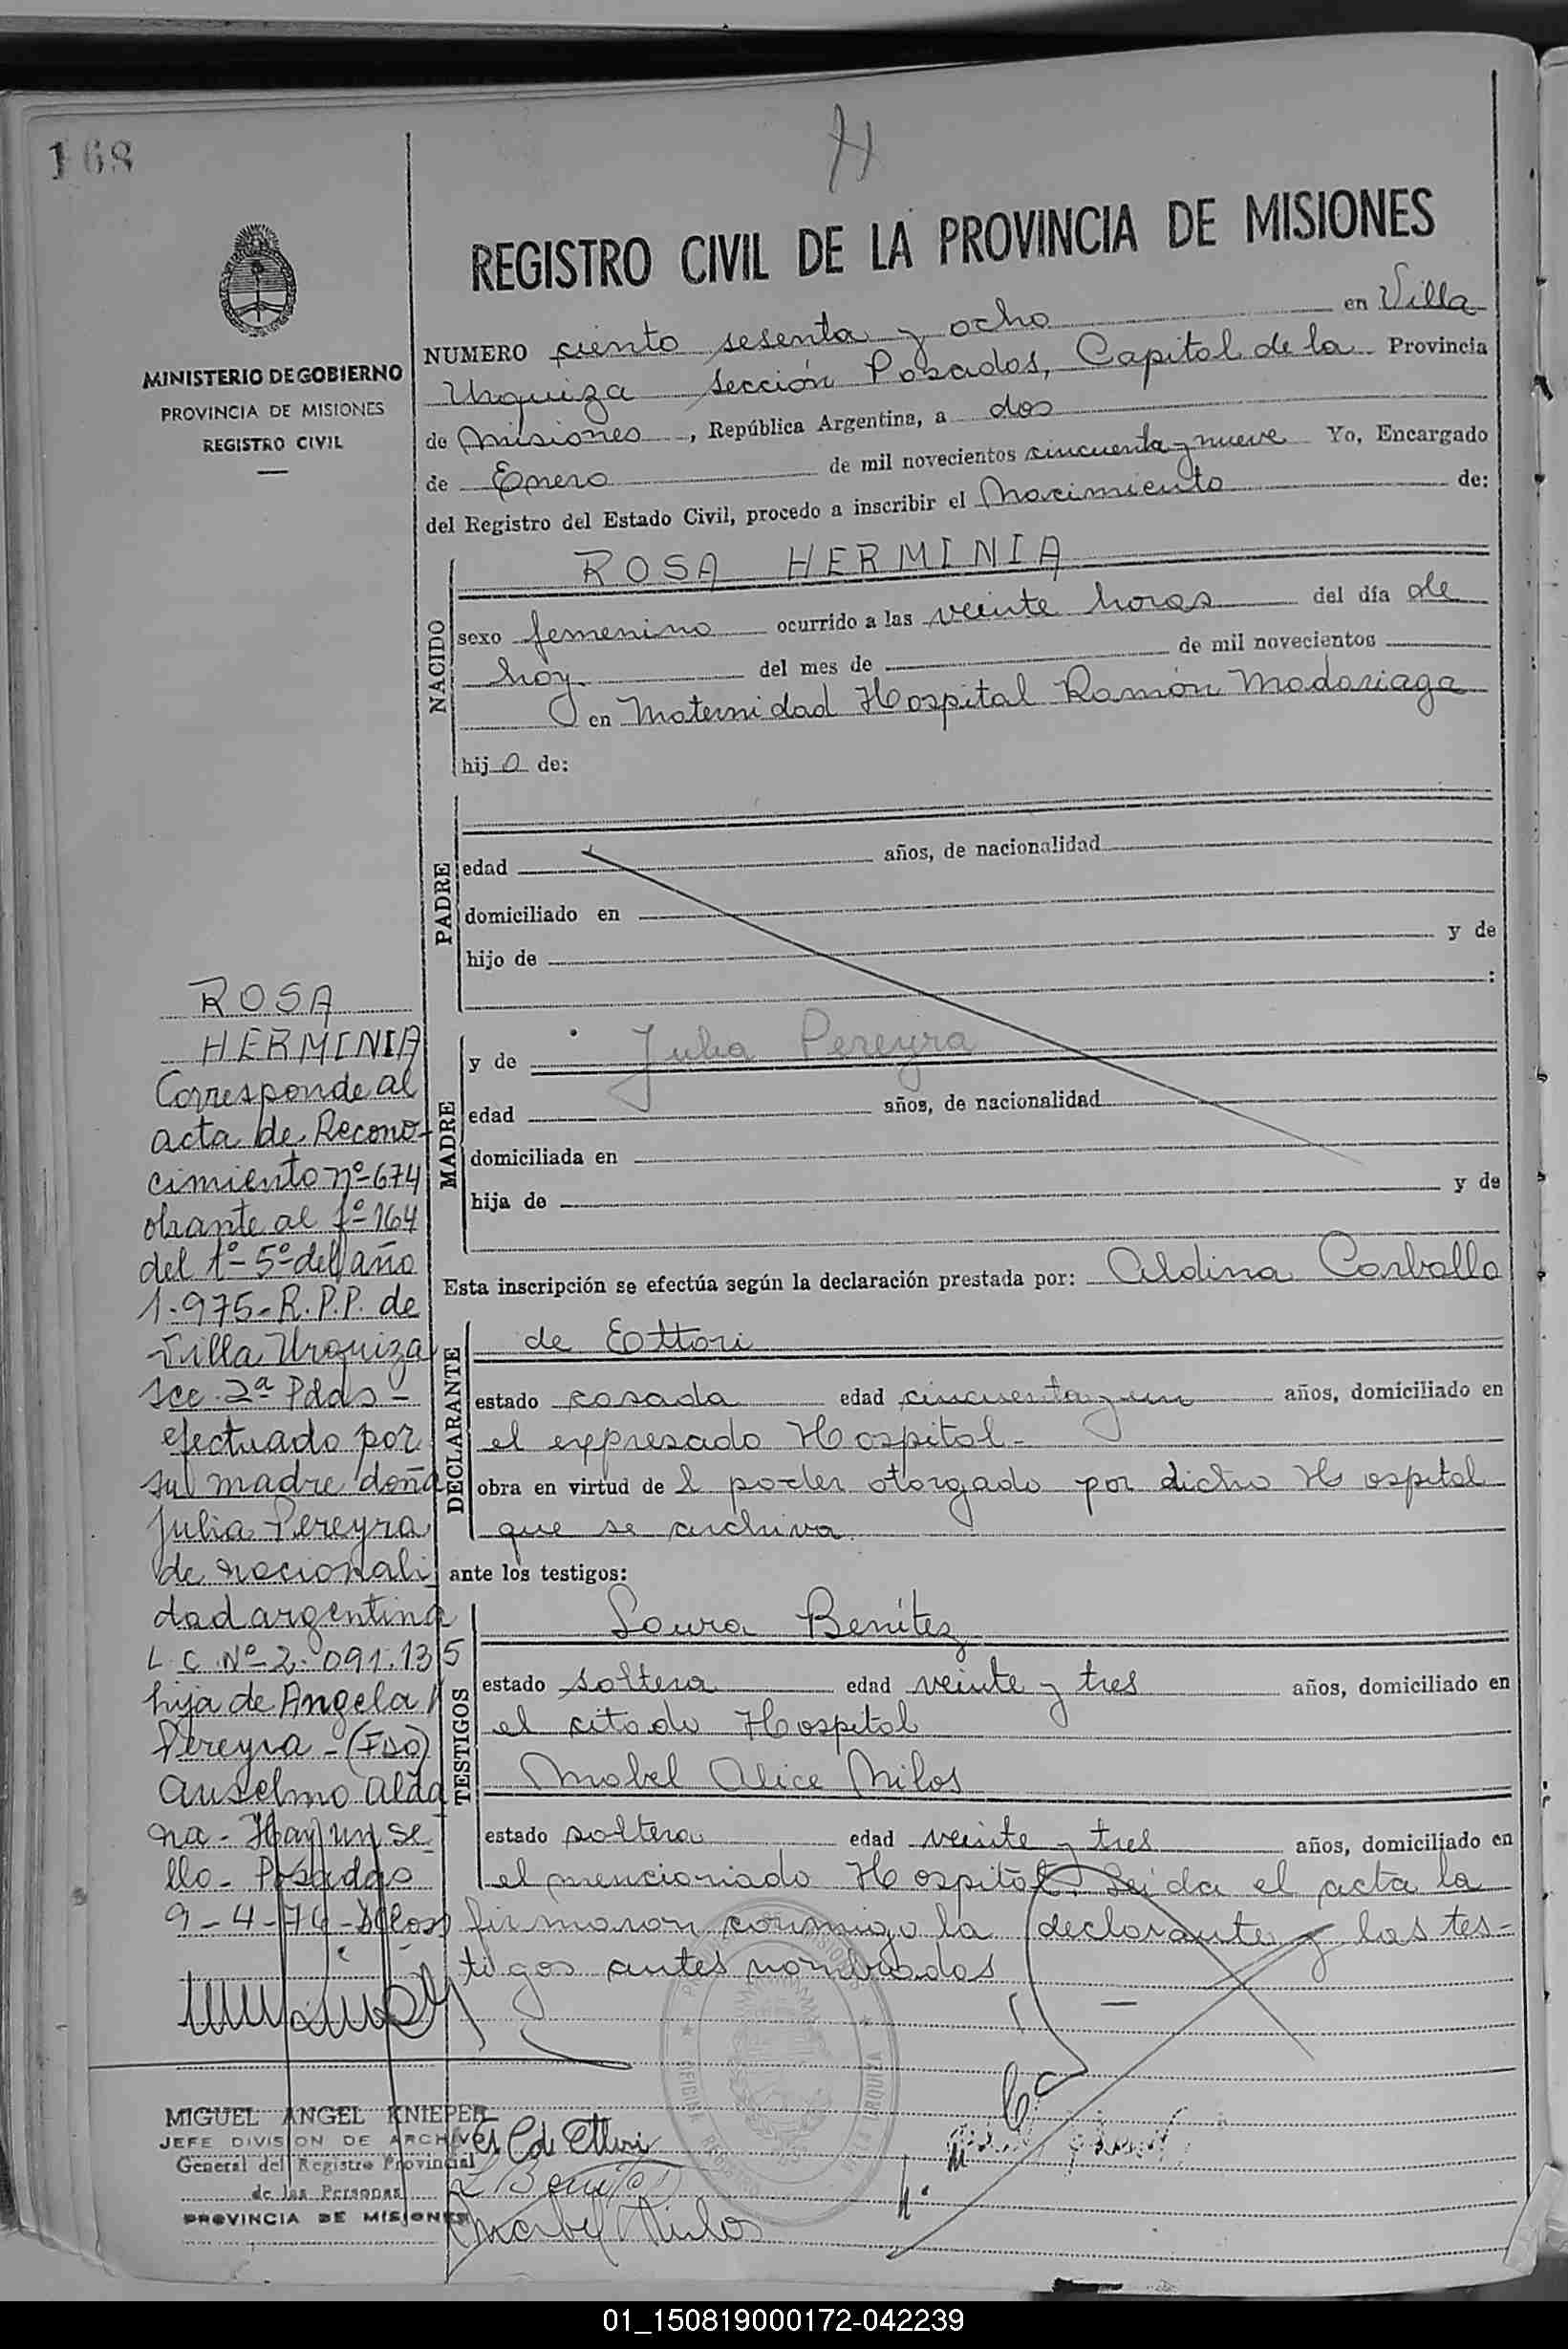 168
H
REGISTRO CIVIL DE LA PROVINCIA DE MISIONES
MINISTERIO DE GOBIERNO
PROVINCIA DE MISIONES
REGISTRO CIVIL
NUMERO ciento sesenta y ocho en Villa
Urquiza sección Posadas, Capital de la Provincia
de Misiones, República Argentina, a dos
de Enero de mil novecientos cincuenta y nueve Yo, Encargado
del Registro del Estado Civil, procedo a inscribir el Nacimiento de:
NACIDO
ROSA HERMINIA
sexo femenino ocurrido a las veinte horas del día de
hoy. del mes de de mil novecientos
en Maternidad Hospital Ramón Madariaga
hija de:
PADRE
edad años, de nacionalidad
domiciliado en
hijo de y de
:
MADRE
y de Julia Pereyra
edad años, de nacionalidad
domiciliada en
hija de y de
Esta inscripción se efectúa según la declaración prestada por: Aldina Carballo
DECLARANTE
de Ettori
estado casada edad cincuenta y un años, domiciliado en
el expresado Hospital-
obra en virtud del poder otorgado por dicho Hospital
que se archiva.
ante los testigos:
TESTIGOS
Laura Benítez
estado soltera edad veinte y tres años, domiciliado en
el citado Hospital
Mabel Alice Milos
estado soltera edad veinte y tres años, domiciliado en
el mencionado Hospital. Leída el acta la
firmaron conmigo la declarante y las tes-
tigos antes nombradas
ROSA
HERMINIA
Corresponde al
acta de Recono-
cimiento nº 674
obrante al fº 164
del tº 5º del año
1.975- R.P.P. de
Villa Urquiza
Sec. 2ª Pdas-
efectuado por
su madre doña
Julia Pereyra
de nacionali
dad argentina
L C Nº 2.091.135
hija de Angela
Pereyra-(FDO)
Anselmo Alda
na- Hay un se
llo- Posadas
9-4-76-
MIGUEL ANGEL KNIEPER
JEFE DIVISION DE ARCHIVO
General del Registro Provincial
de las Personas
PROVINCIA DE MISIONES
C de Ettori
L Benítez
Mabel Milos
01_150819000172-042239